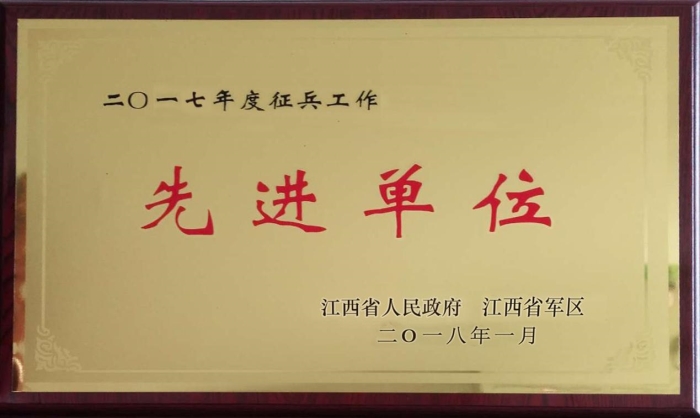 二〇一七年度征兵工作
先进单位
江西省人民政府 江西省军区
二〇一八年一月